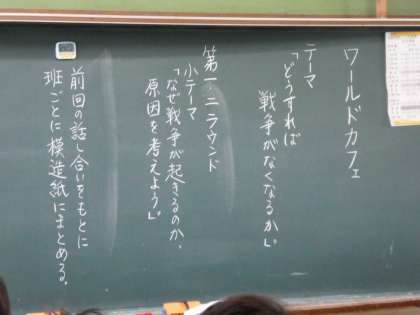 ワールドカフェ
テーマ
「どうすれば
戦争がなくなるか」。
第一・二ラウンド
小テーマ
「なぜ戦争が起きるのか、
原因を考えよう」。
前回の話し合いをもとに
班ごとに模造紙にまとめる。